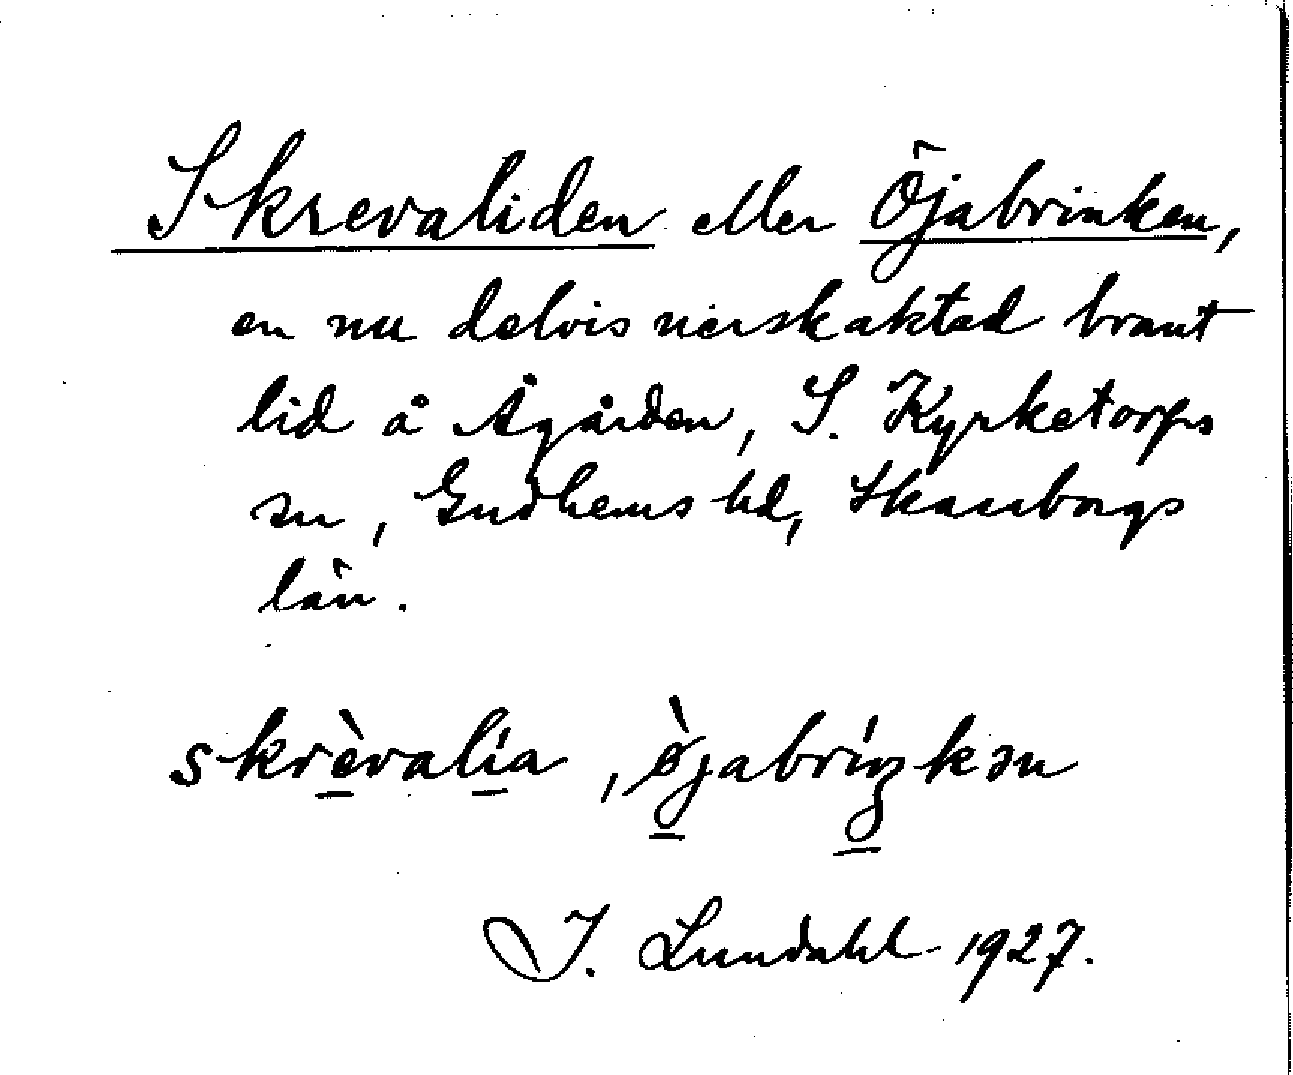 Skrevaliden eller Öjabrinken,
en nu delvis nerskaktad brant
lid å Ågården, S. Kyrketorps
sn, Gudhems hd, Skaraborgs
län.
skrèvalía, ø̀jabríŋkən
I. Lundahl 1927.